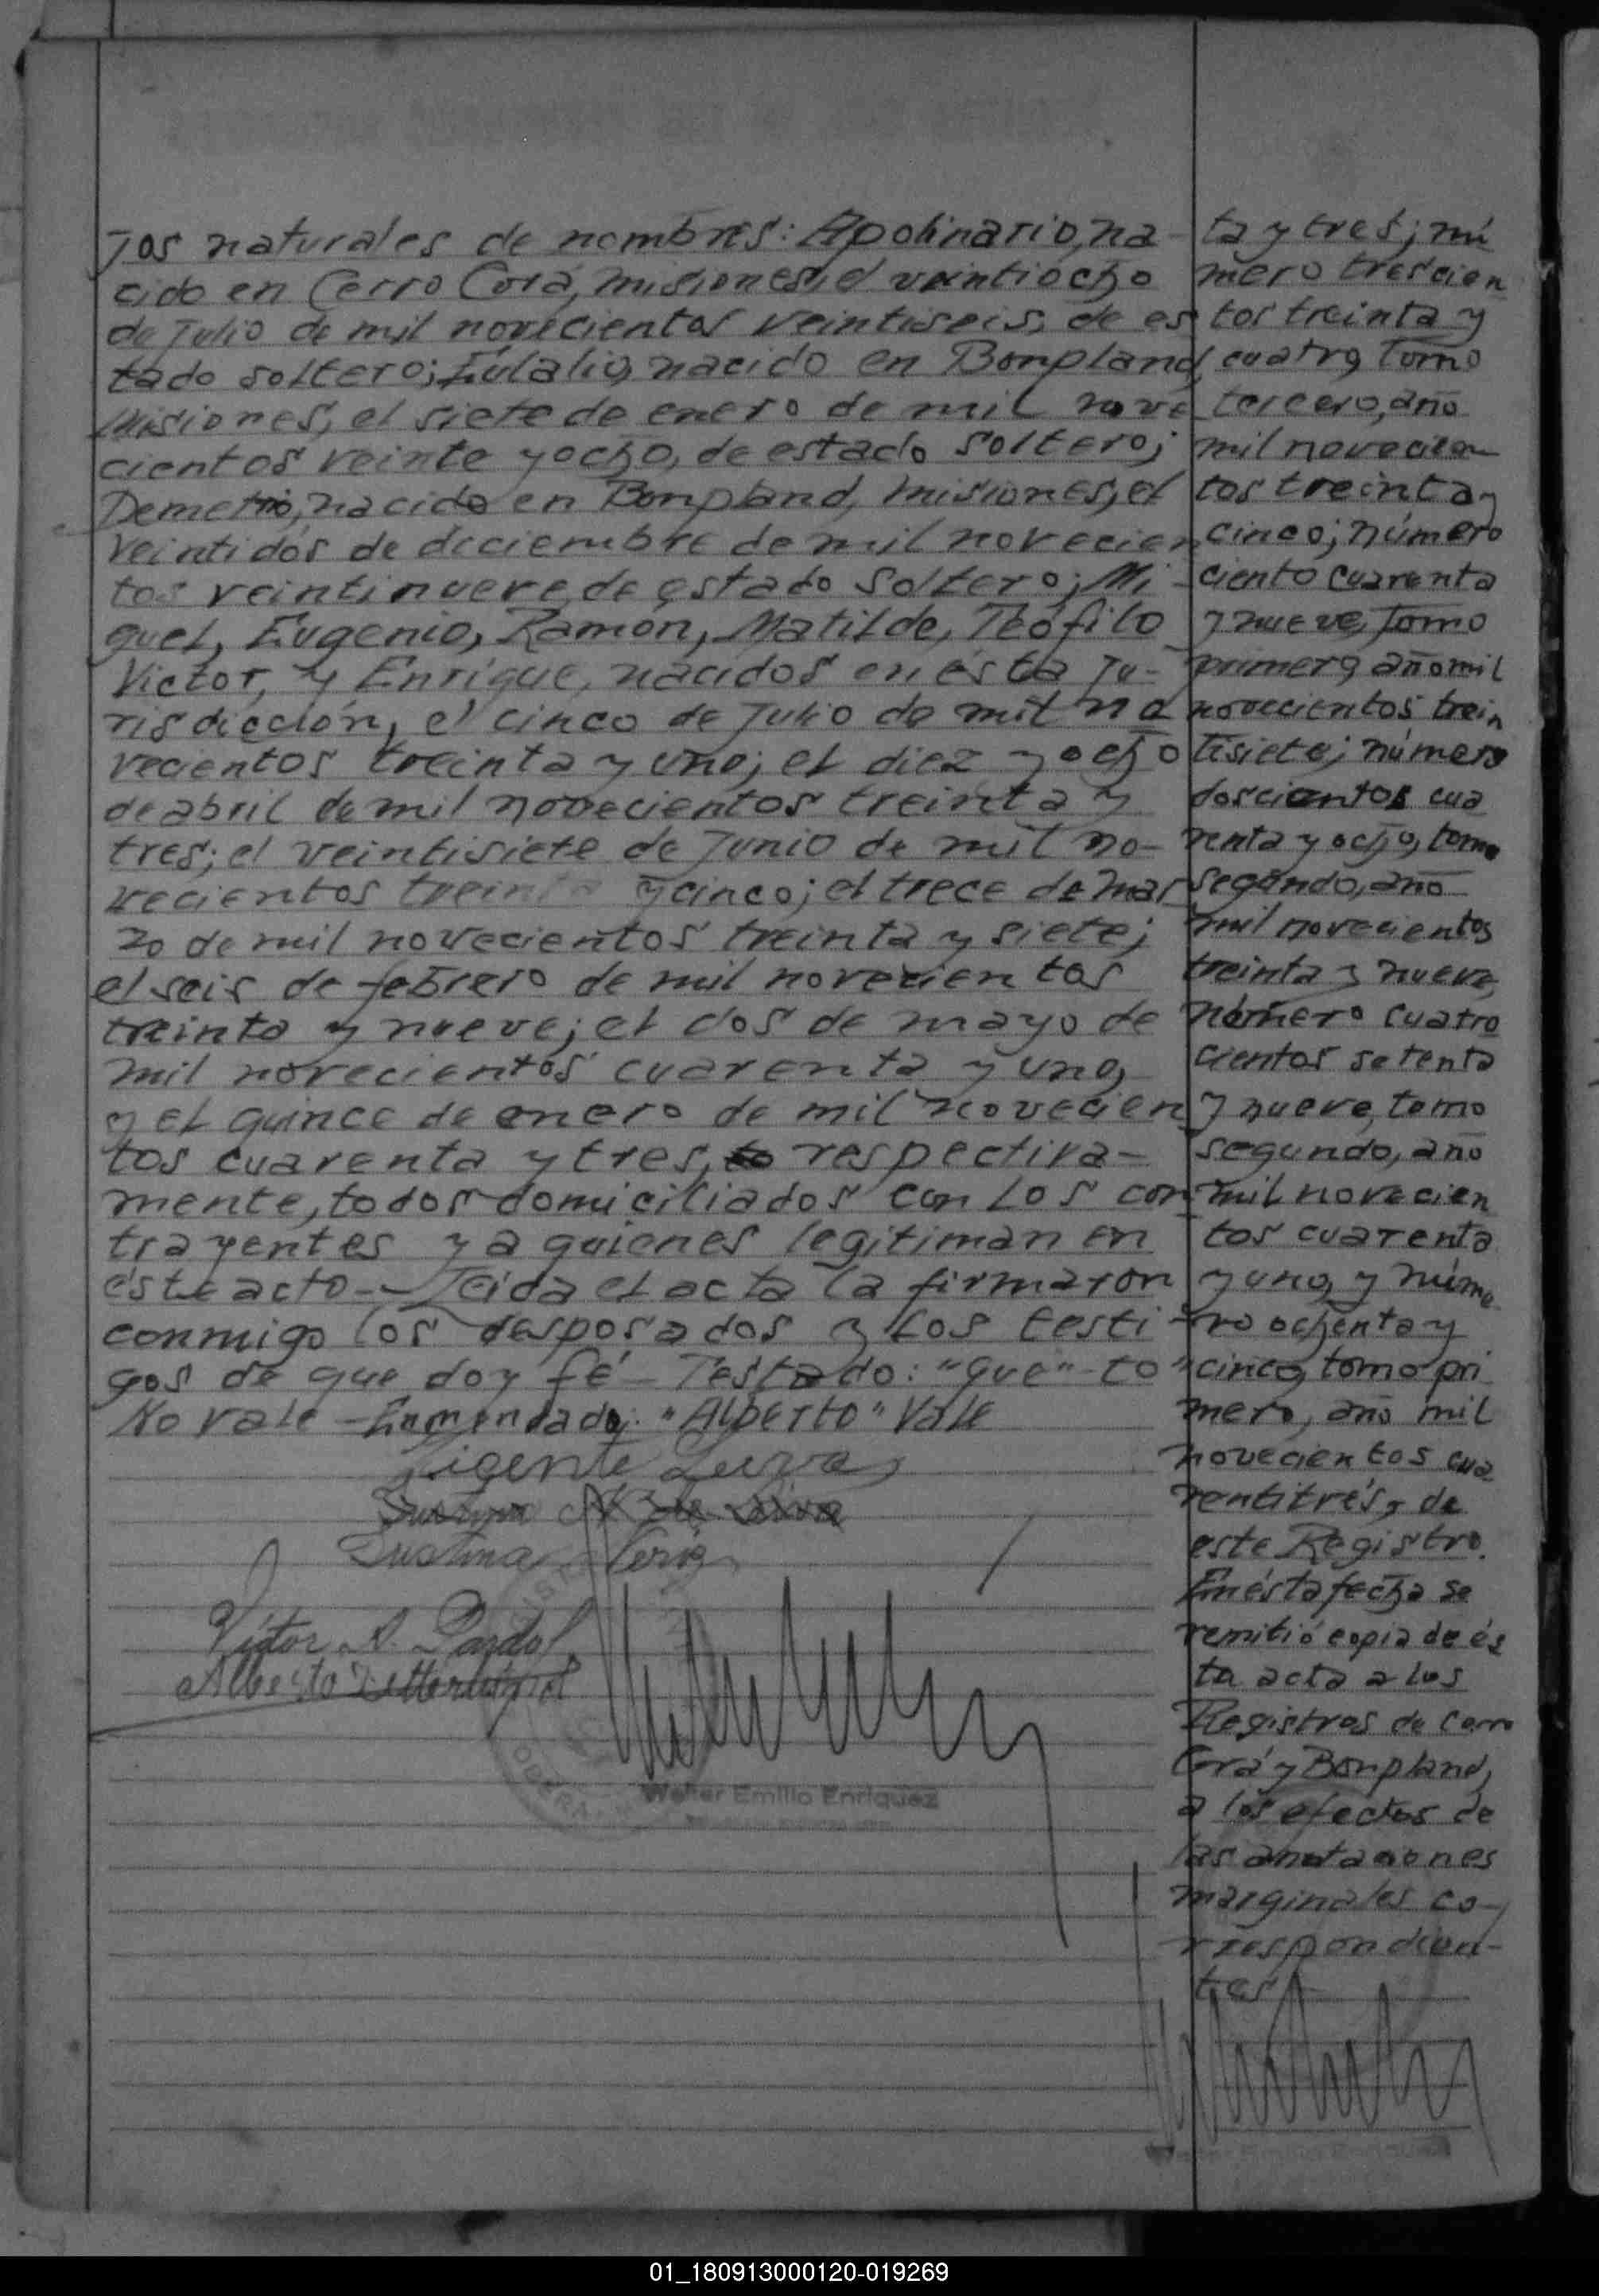 jos naturales de nombres: Apolinario, na-
cido en Cerro Corá, Misiones, el veintiocho
de Julio de mil novecientos veintiseis, de es
tado soltero; Eulalio, nacido en Bonpland,
Misiones, el siete de enero de mil nove
cientos veinte y ocho, de estado soltero;
Demetrio, nacido en Bonpland, Misiones, el
veintidós de diciembre de mil novecien
tos veintinueve, de estado soltero; Mi-
guel, Eugenio, Ramón, Matilde, Teófilo
Victor, y Enrique, nacidos en ésta ju-
risdicción, el cinco de Julio de mil no
vecientos treinta y uno; el diez y ocho
de abril de mil novecientos treinta y
tres; el veintisiete de Junio de mil no-
vecientos treinta y cinco; el trece de mar
zo de mil novecientos treinta y siete;
el seis de febrero de mil novecientos
treinta y nueve; el dos de mayo de
mil novecientos cuarenta y uno,
y el quince de enero de mil novecien
tos cuarenta y tres, to respectiva-
mente, todos domiciliados con los con
trayentes y a quienes legitiman en
éste acto.- Leida el acta la firmaron
conmigo los desposados y los testi-
gos de que doy fé - Testado: "que" - to"
No vale - Enmendado: "Alberto" Vale
Vicente Leiva

Victor A. Pardo
Alberto
ODERA
Walter Emilio Enriquez
ta y tres; nú
mero trescien
tos treinta y
cuatro, tomo
tercero, año
mil novecien
tos treinta y
cinco; número
ciento cuarenta
y nueve, tomo
primero, año mil
novecientos trein
tisiete; número
doscientos cua
renta y ocho, tomo
segundo, año
mil novecientos
treinta y nueve,
número cuatro
cientos setenta
y nueve, tomo
segundo, año
mil novecien
tos cuarenta
y uno, y núme
ro ochenta y
cinco, tomo pri
mero, año mil
novecientos cua
rentitrés, de
este Registro.
En ésta fecha se
remitió copia de és
ta acta a los
Registros de Cerro
Corá y Bonpland,
a los efectos de
las anotaciones
marginales co-
rrespondien-
tes
01_180913000120-019269